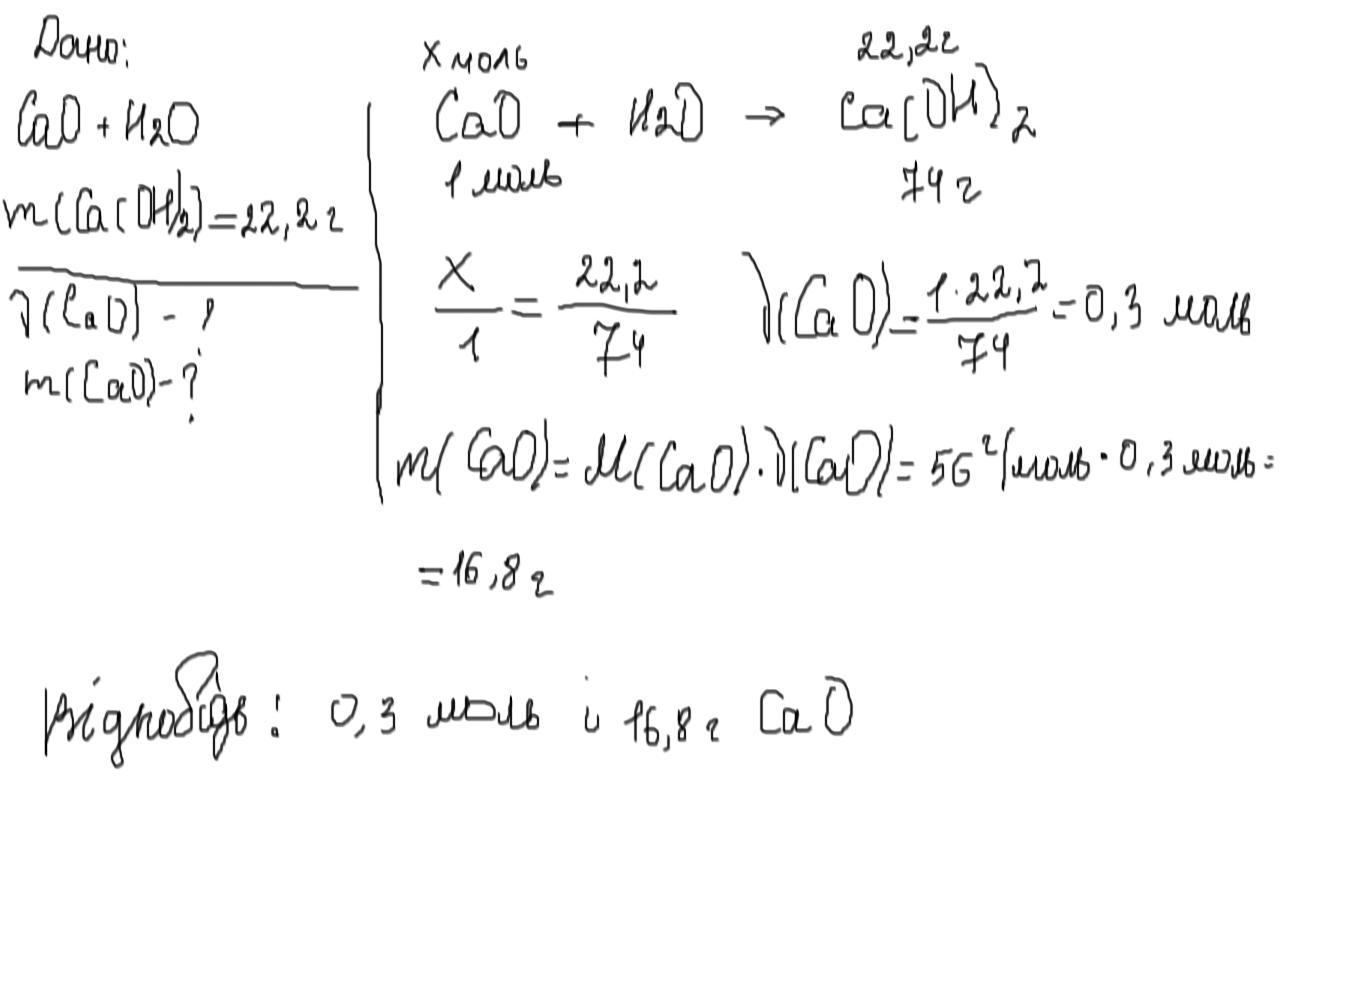 Дано:
CaO + H2O
m(Ca(OH)2) = 22,2 г
ν(CaO) - ?
m(CaO) - ?
x моль 22,2г
CaO + H2O → Ca(OH)2
1 моль 74 г
x/1 = 22,2/74 ν(CaO) = 1·22,2/74 = 0,3 моль
m(CaO) = M(CaO)·ν(CaO) = 56 г/моль · 0,3 моль =
= 16,8 г
Відповідь: 0,3 моль і 16,8 г CaO